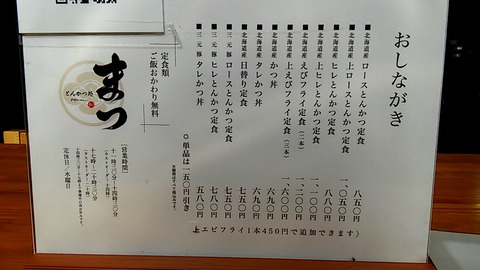 おしながき
■北海道産 ロースとんかつ定食 八五〇円
■北海道産 上ロースとんかつ定食 一、〇五〇円
■北海道産 ヒレとんかつ定食 八八〇円
■北海道産 上ヒレとんかつ定食 一、一〇〇円
■北海道産 えびフライ定食(二本) 一、二〇〇円
■北海道産 上えびフライ定食(三本) 一、六〇〇円
■北海道産 かつ丼 六九〇円
■北海道産 タレかつ丼 六九〇円
■北海道産 日替り定食 七五〇円
■三元豚 ロースとんかつ定食 七五〇円
■三元豚 ヒレとんかつ定食 七八〇円
■三元豚 タレかつ丼 五八〇円
○単品は一五〇円引き
上エビフライ1本450円で追加できます)
定食類
ご飯おかわり無料
とんかつ処
まつ
[営業時間]
十一時三〇分~十四時三〇分
十七時~二十時三〇分
定休日/水曜日